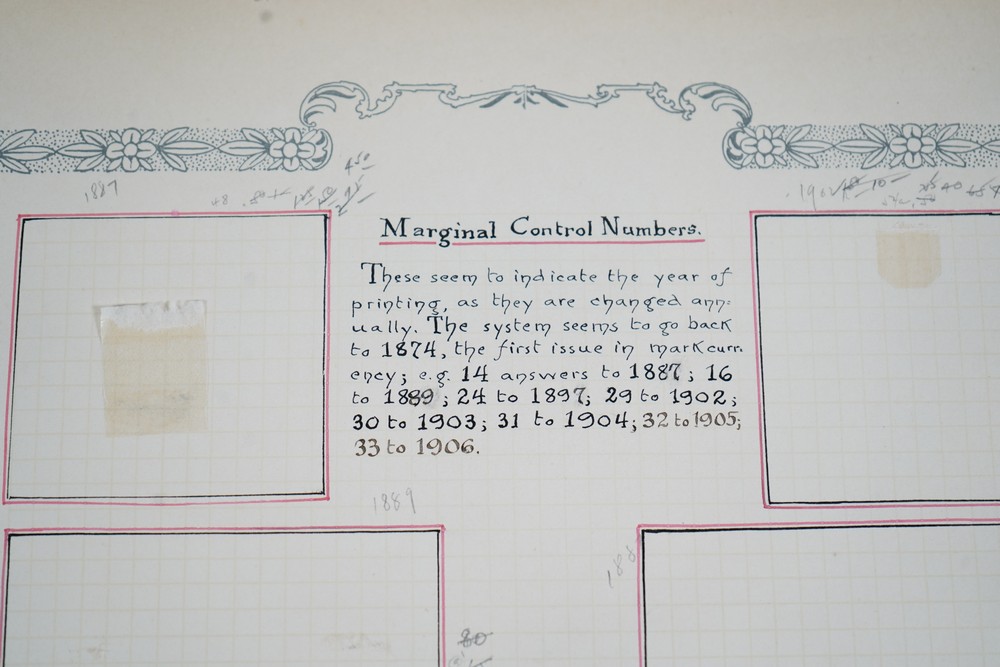 1887
Marginal Control Numbers.
These seem to indicate the year of
printing, as they are changed ann=
ually. The system seems to go back
to 1874, the first issue in mark curr.
ency; e.g. 14 answers to 1887; 16
to 1889; 24 to 1897; 29 to 1902;
30 to 1903; 31 to 1904; 32 to 1905;
33 to 1906.
1889
80